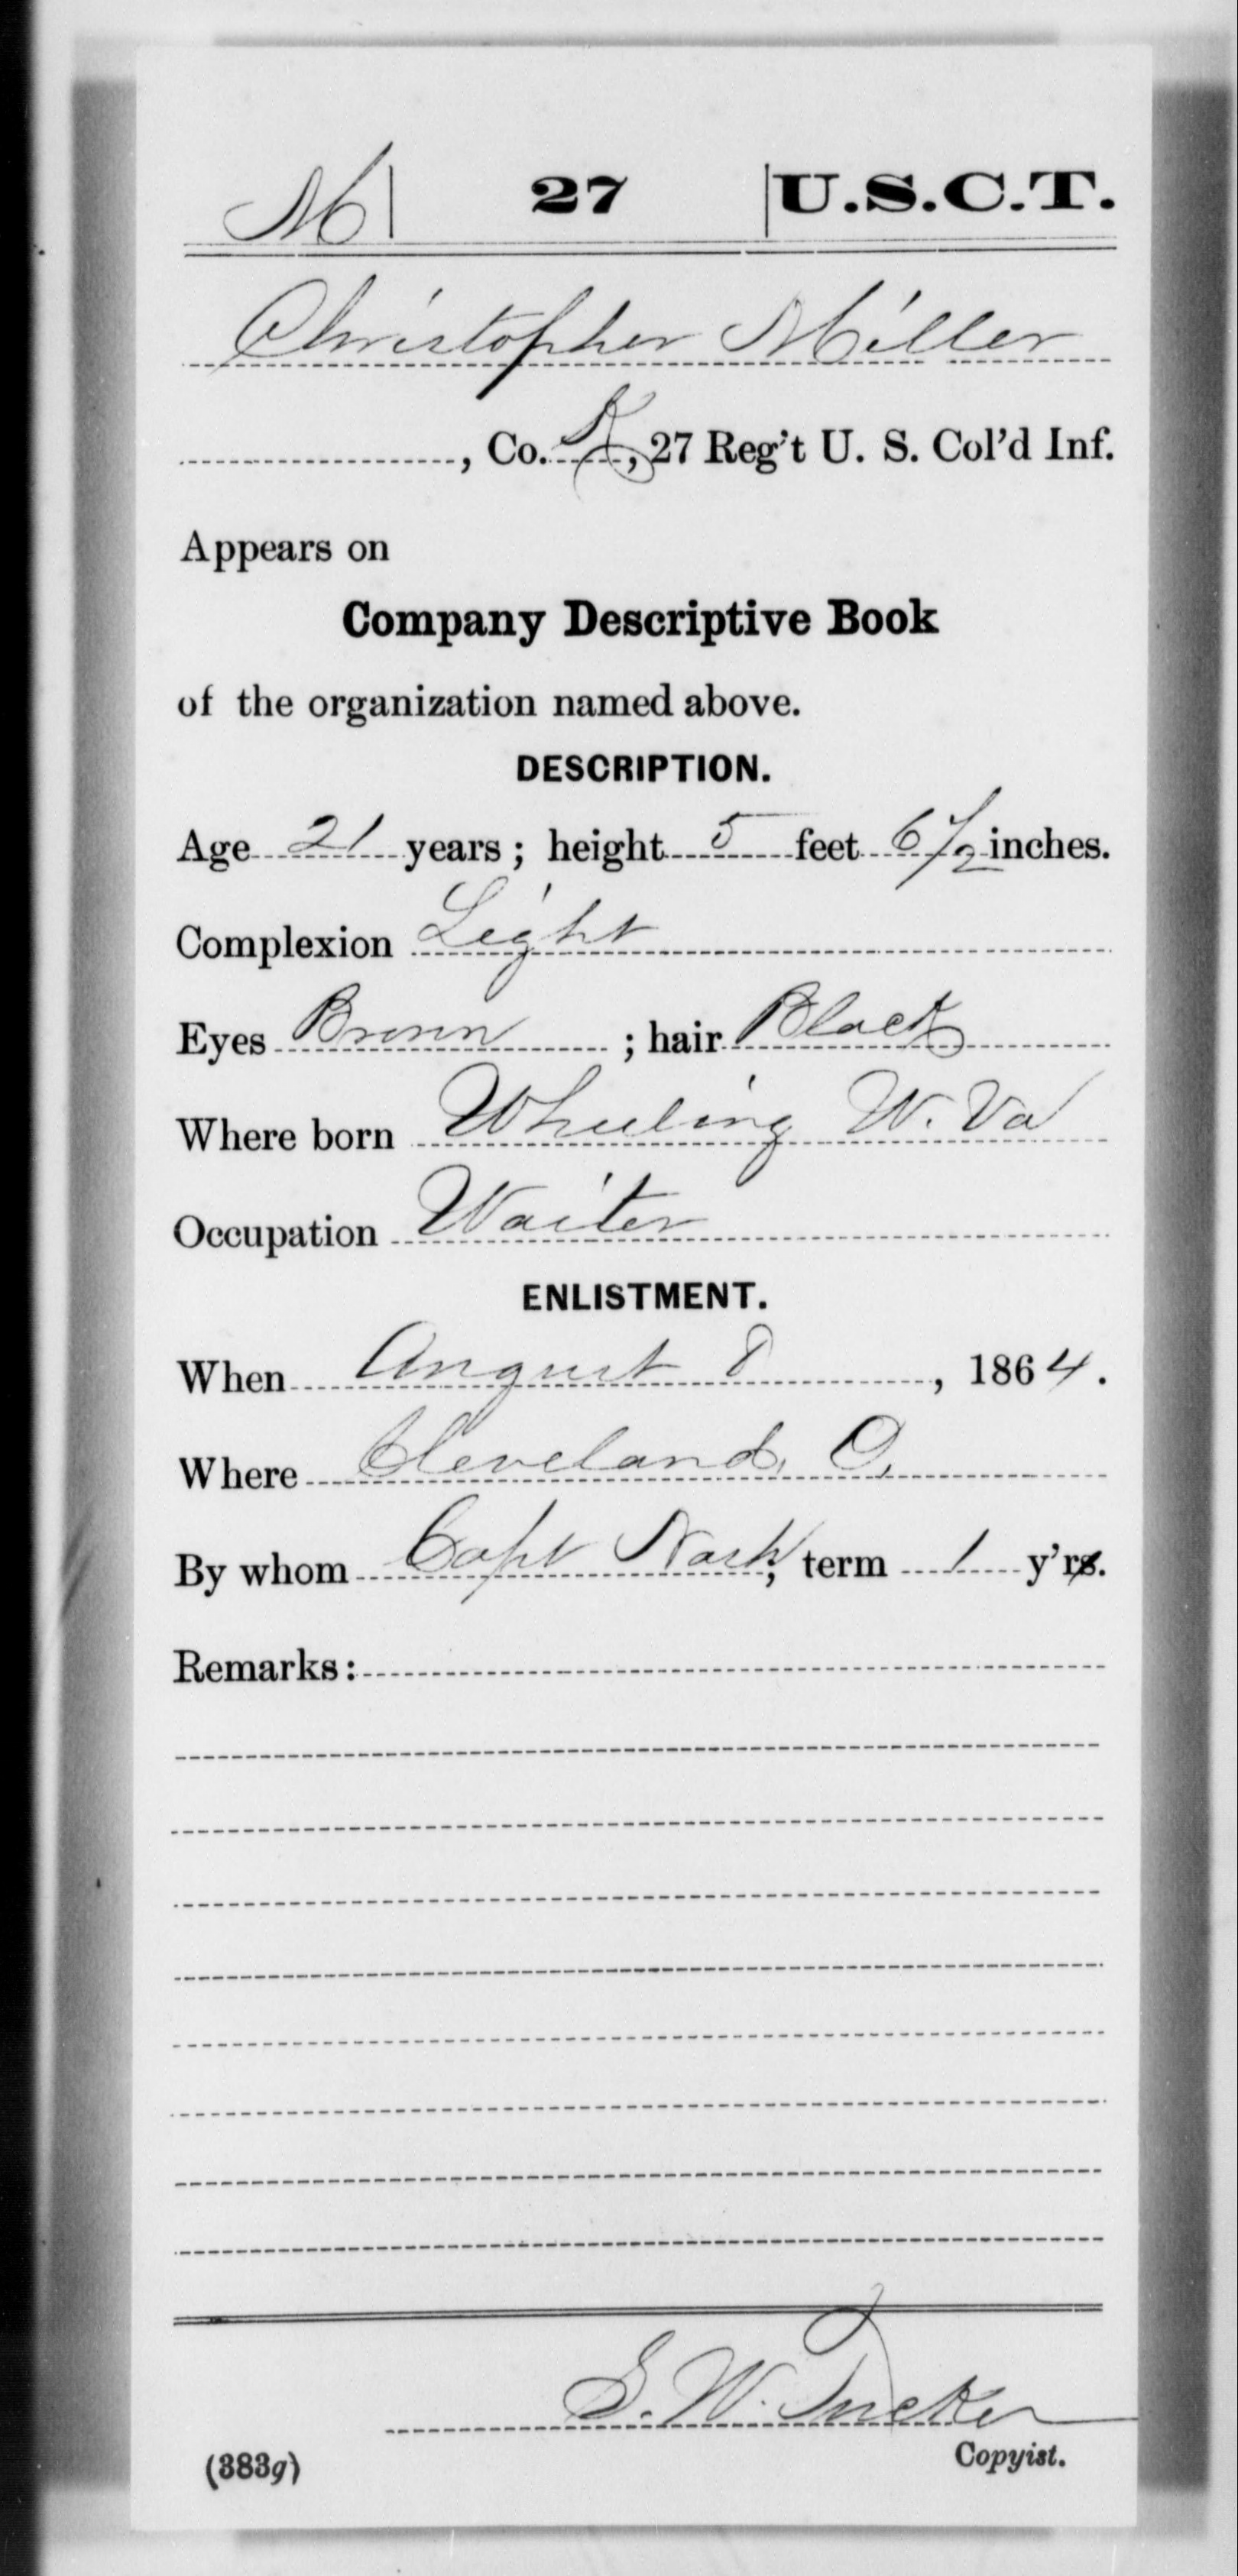 M | 27 | U.S.C.T.
Christopher Miller
, Co. K, 27 Reg't U. S. Col'd Inf.
Appears on
Company Descriptive Book
of the organization named above.
DESCRIPTION.
Age 21 years; height 5 feet 6 1/2 inches.
Complexion Light
Eyes Brown ; hair Black
Where born Wheeling W. Va
Occupation Waiter
ENLISTMENT.
When August 8, 1864.
Where Cleveland, O.
By whom Capt Nash; term 1 y'rs.
Remarks:
S. W. Tucker
Copyist.
(383g)